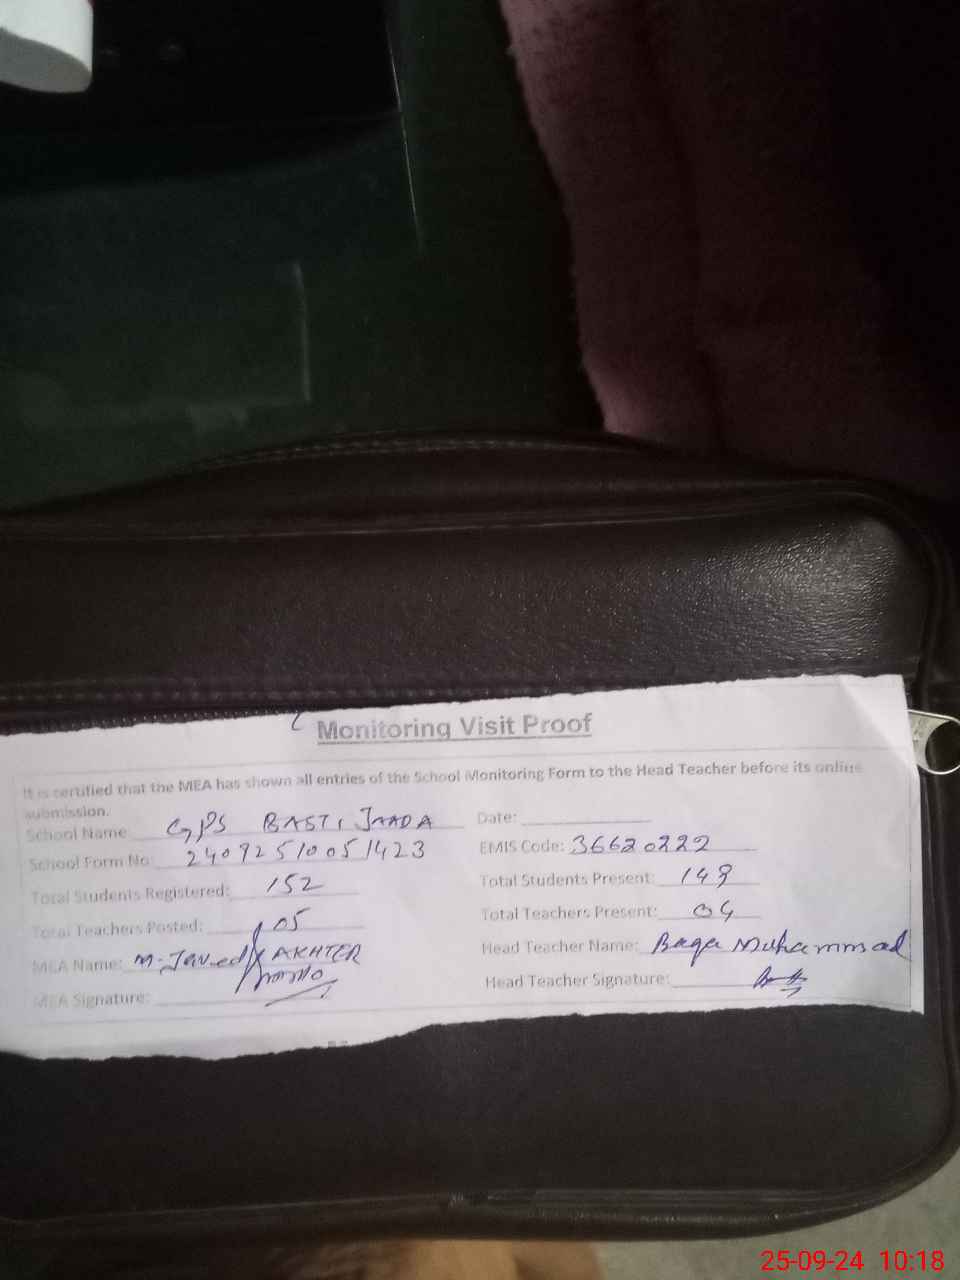 Monitoring Visit Proof
It is certified that the MEA has shown all entries of the School Monitoring Form to the Head Teacher before its online
submission.
School Name GPS BASTI JAADA Date:
School Form No: 24092510051423 EMIS Code: 36620222
Total Students Registered: 152 Total Students Present: 149
Total Teachers Posted: 05 Total Teachers Present: 04
MEA Name: M. Javed AKHTER Head Teacher Name: Baqa Muhammad
MEA Signature: Head Teacher Signature:
25-09-24 10:18